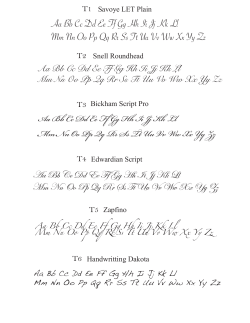 T1 Savoye LET Plain
Aa Bb Cc Dd Ee Ff Gg Hh Ii Jj Kk Ll
Mm Nn Oo Pp Qq Rr Ss Tt Uu Vv Ww Xx Yy Zz
T2 Snell Roundhead
Aa Bb Cc Dd Ee Ff Gg Hh Ii Jj Kk Ll
Mm Nn Oo Pp Qq Rr Ss Tt Uu Vv Ww Xx Yy Zz
T3 Bickham Script Pro
Aa Bb Cc Dd Ee Ff Gg Hh Ii Jj Kk Ll
Mm Nn Oo Pp Qq Rr Ss Tt Uu Vv Ww Xx Yy Zz
T4 Edwardian Script
Aa Bb Cc Dd Ee Ff Gg Hh Ii Jj Kk Ll
Mm Nn Oo Pp Qq Rr Ss Tt Uu Vv Ww Xx Yy Zz
T5 Zapfino
Aa Bb Cc Dd Ee Ff Gg Hh Ii Jj Kk Ll
Mm Nn Oo Pp Qq Rr Ss Tt Uu Vv Ww Xx Yy Zz
T6 Handwritting Dakota
Aa Bb Cc Dd Ee Ff Gg Hh Ii Jj Kk Ll
Mm Nn Oo Pp Qq Rr Ss Tt Uu Vv Ww Xx Yy Zz